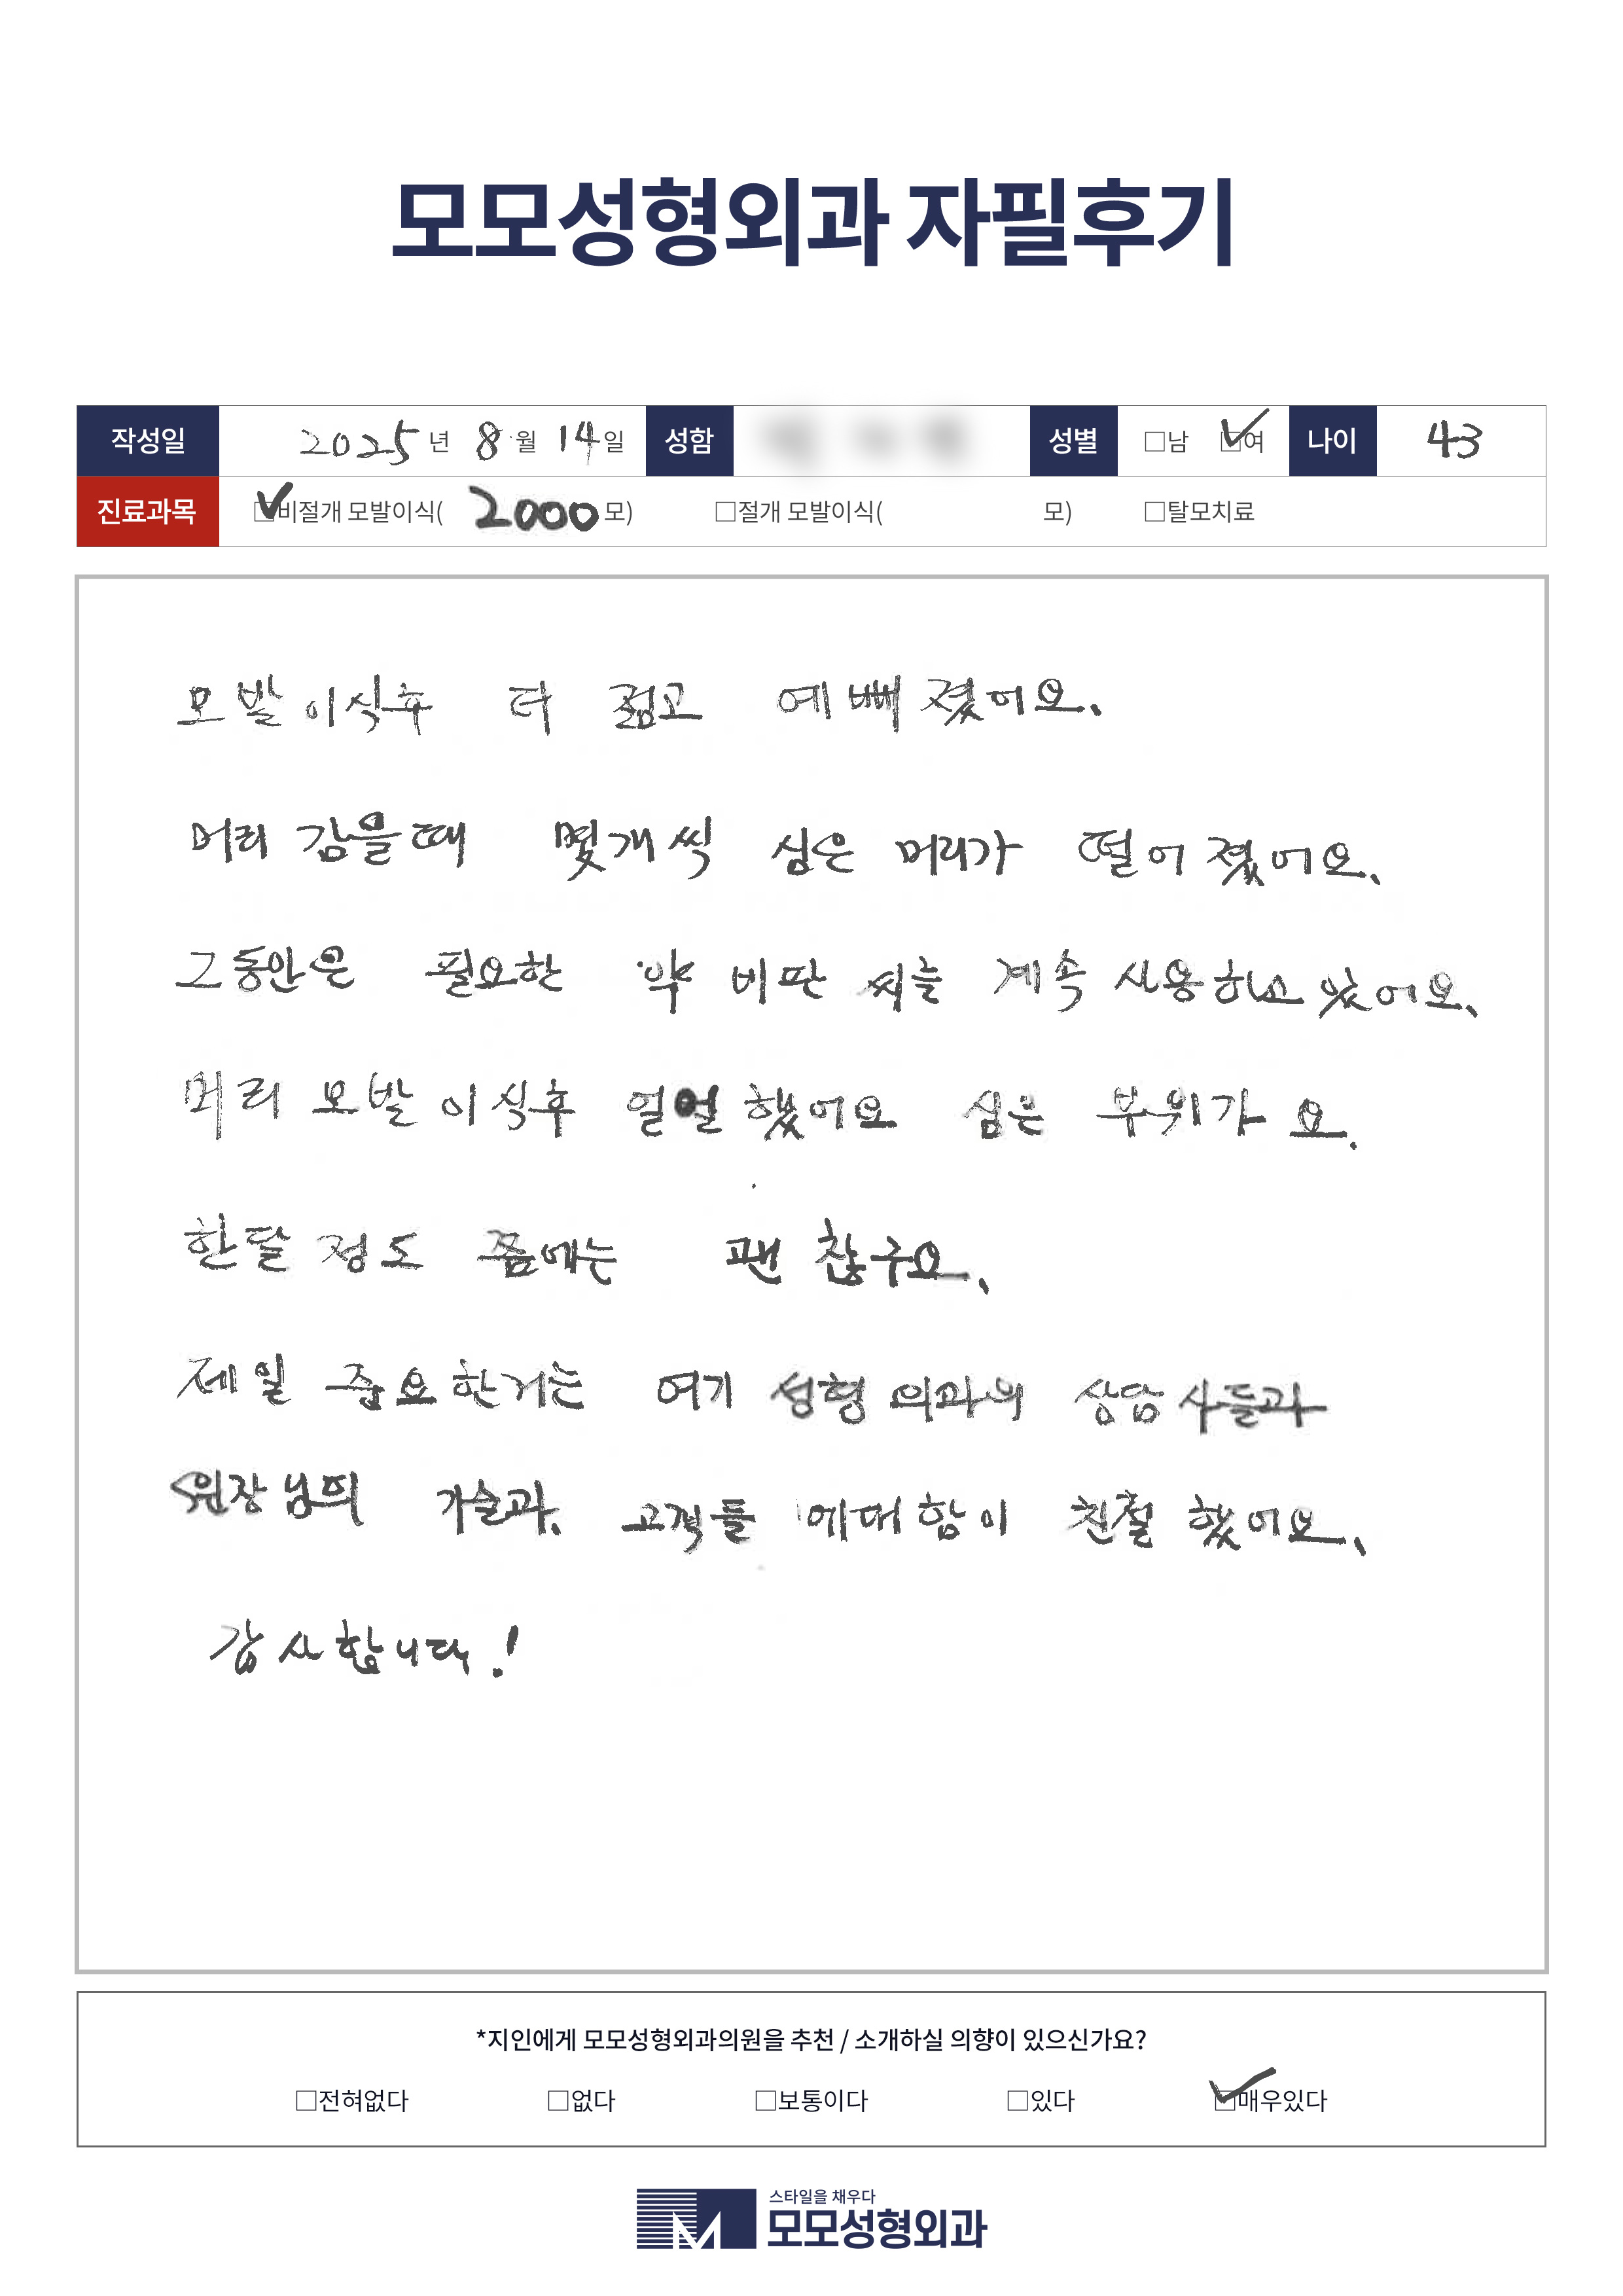 모모성형외과 자필후기
작성일 2025년 8월 14일 성함 성별 □남 ☑여 나이 43
진료과목 ☑비절개 모발이식( 2000 모) □절개 모발이식( 모) □탈모치료
모발이식후 더 젊고 예뻐졌어요.
머리 감을때 몇개씩 심은 머리가 떨어졌어요.
그동안은 필요한 약 비판씨늘 계속 사용하고 있어요.
머리 모발이식후 얼얼했어요 심은 부위가요.
한달 정도 쯤에는 괜찮구요.
제일 중요한거는 여기 성형외과의 상담사들과
원장님의 기술과, 고객들 에대함이 친절했어요.
감사합니다!
*지인에게 모모성형외과의원을 추천 / 소개하실 의향이 있으신가요?
□전혀없다 □없다 □보통이다 □있다 ☑매우있다
스타일을 채우다
모모성형외과